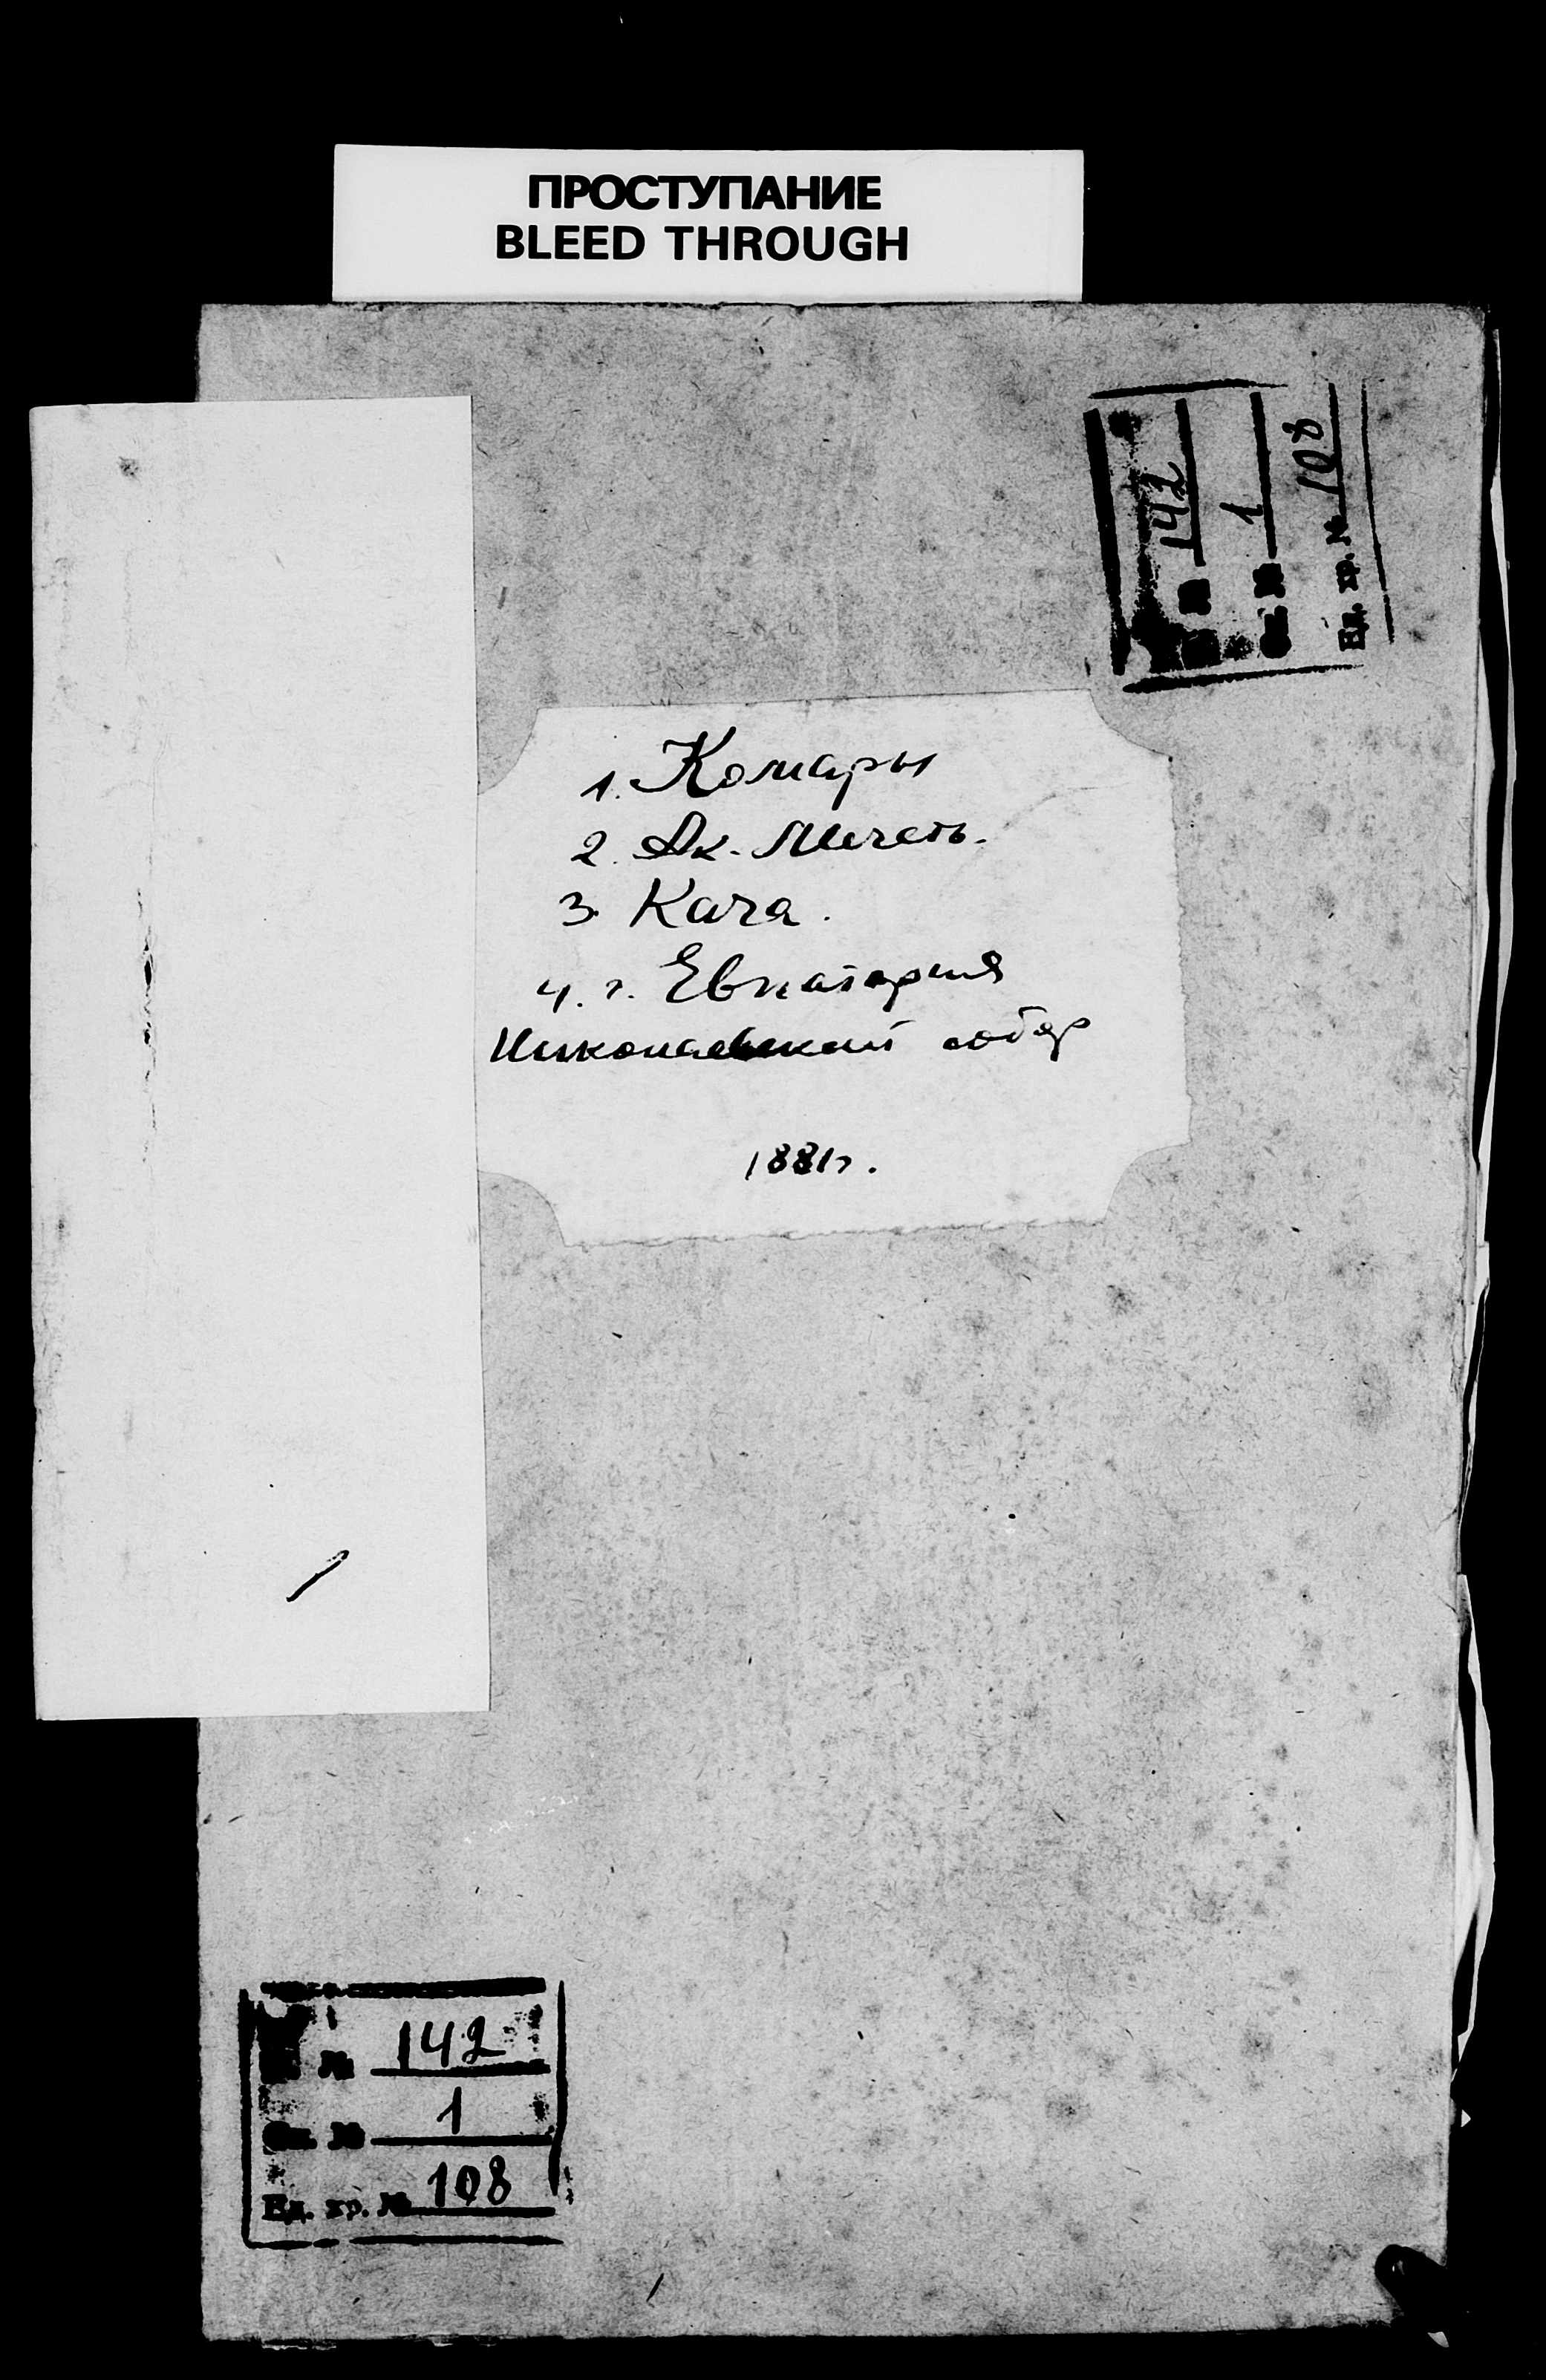 ПРОСТУПАНИЕ
BLEED THROUGH
142
1
Ед. хр. № 108
1. Комары
2. Ак-Мечеть.
3. Кача.
4. г. Евпатория
Николаевский собор
1881г.
№ 142
Оп. № 1
Ед. хр. № 108